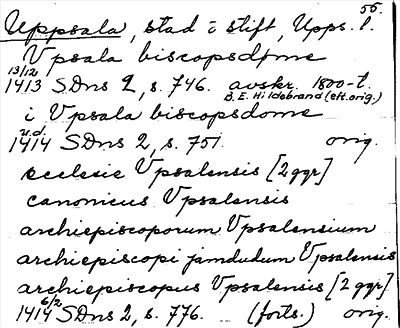 55.
Uppsala, stad i stift, Upps. l.
Vpsala biscopsdøme
13/12
1413 SDns 2, s. 746. avskr. 1800-t.
B.E. Hildebrand (eft. orig.)
i Vpsala biscopsdome
u.d.
1414 SDns 2, s. 751. orig.
ecclesie Vpsalensis [2 ggr]
canonicus Vpsalensis
archiepiscoporum Vpsalensium
archiepiscopi jamdudum Vpsalensis
archiepiscopus Vpsalensis [2 ggr]
1414 6/2 SDns 2, s. 776. (forts.) orig.